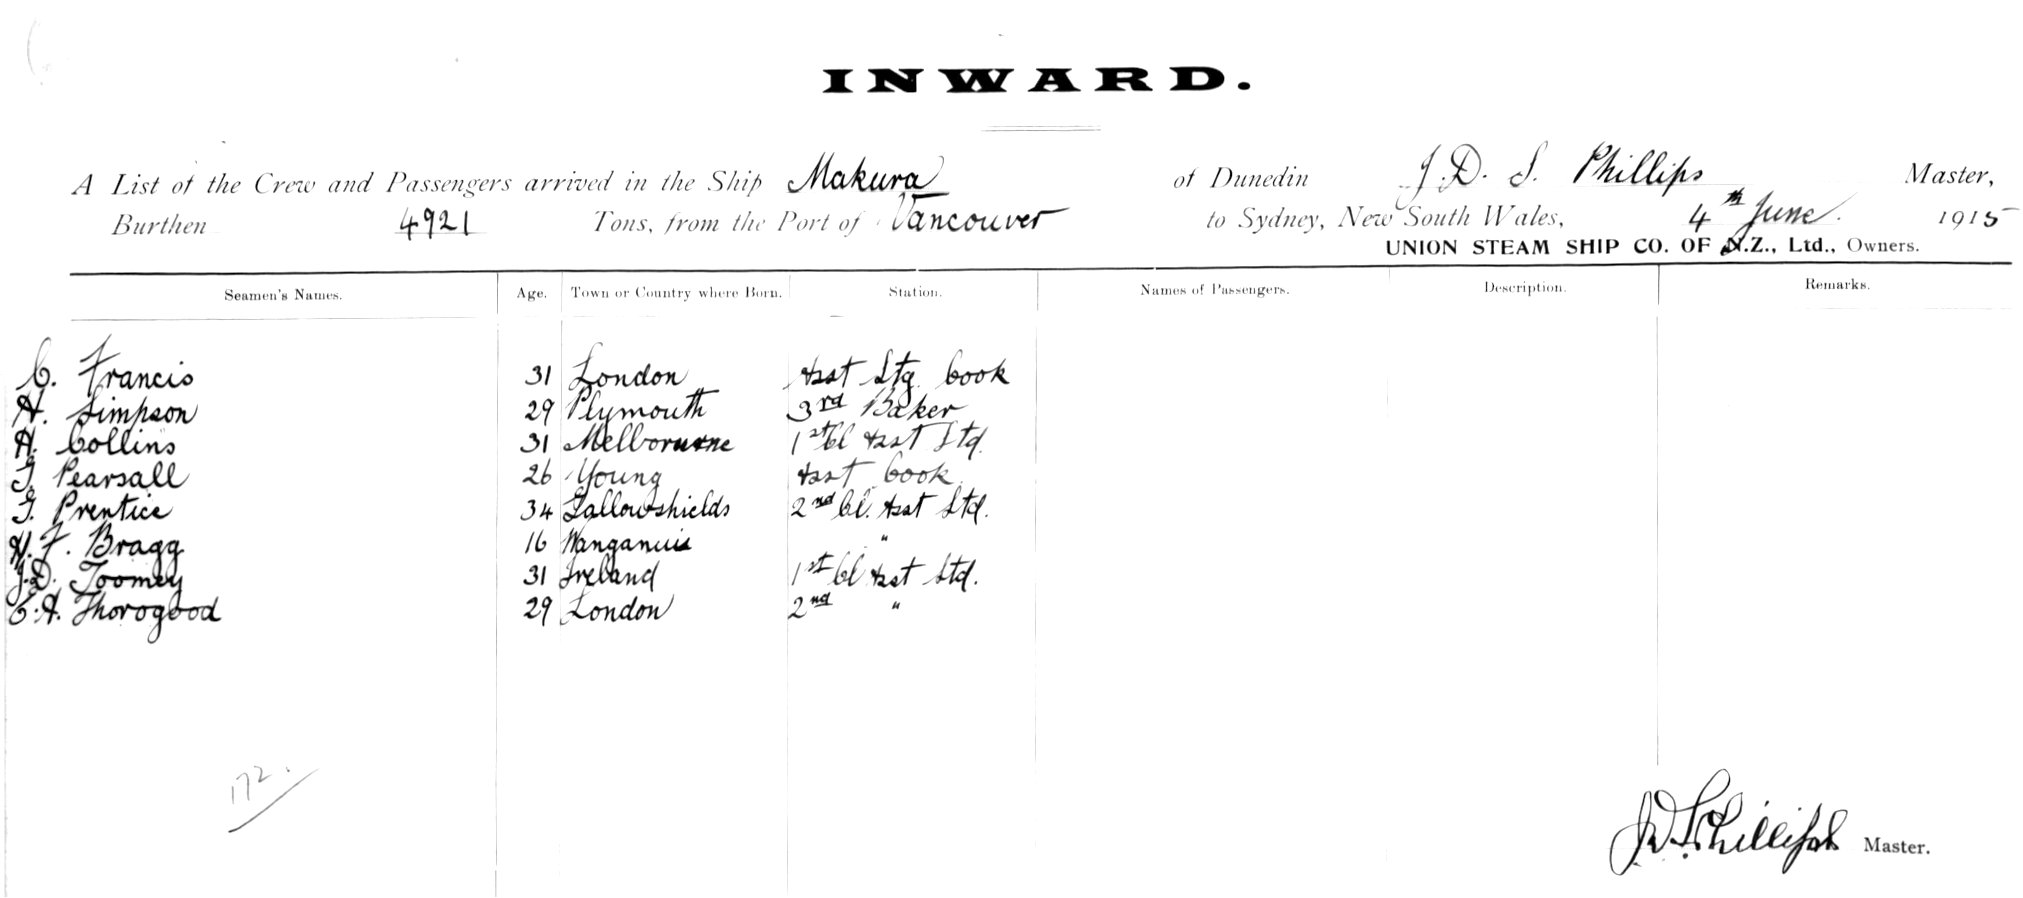 INWARD.
A List of the Crew and Passengers arrived in the Ship Makura of Dunedin J. D. S. Phillips Master,
Burthen 4921 Tons, from the Port of Vancouver to Sydney, New South Wales, 4th June. 1915
UNION STEAM SHIP CO. OF N.Z., Ltd., Owners.
Seamen's Names. Age. Town or Country where Born. Station. Names of Passengers. Description. Remarks.
C. Francis 31 London Asst Stg. Cook
H. Simpson 29 Plymouth 3rd Baker
H. Collins 31 Melbourne 1st Cl Asst Std.
J. Pearsall 26 Young Asst Cook
J. Prentice 34 Gallowshields 2nd Cl. Asst Std.
H. F. Bragg 16 Wanganui "
J. D. Toomey 31 Ireland 1st Cl Asst Std.
E. A. Thorogood 29 London 2nd "
172.
J D S Phillips Master.